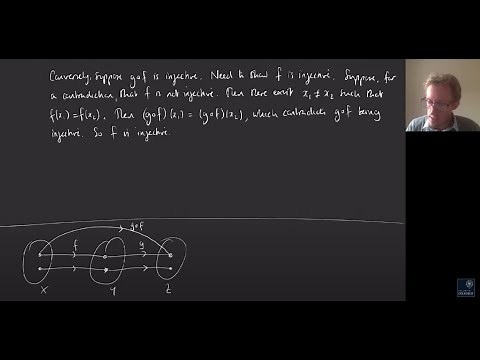 Conversely, suppose g∘f is injective. Need to show f is injective. Suppose, for
a contradiction, that f is not injective. Then there exist x₁ ≠ x₂ such that
f(x₁) = f(x₂). Then (g∘f)(x₁) = (g∘f)(x₂), which contradicts g∘f being
injective. So f is injective.
g∘f
f g
X Y Z
OXFORD